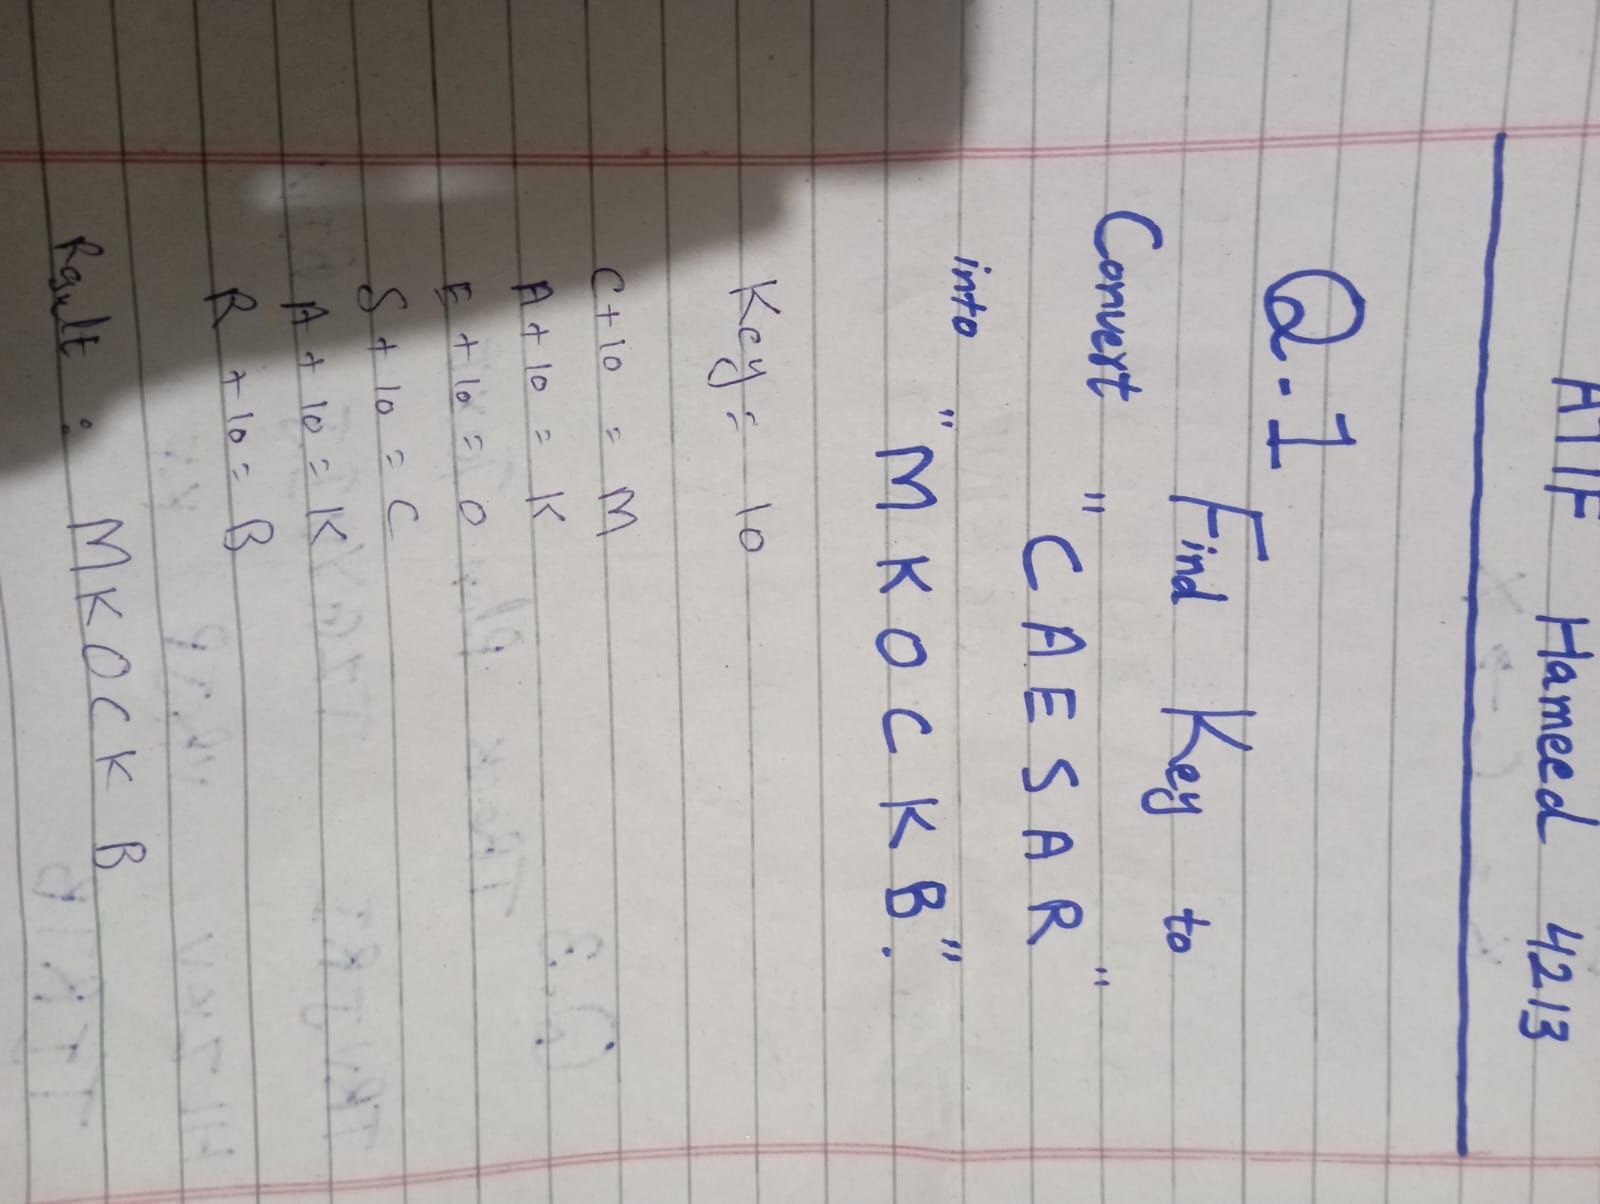 ATIF Hameed 4213
Q-1
Find Key to
Convert "CAESAR"
into "MKOCKB."
Key = 10
C+10 = M
A+10 = K
E+10 = O
S+10 = C
A+10 = K
R+10 = B
Result : MKOCKB